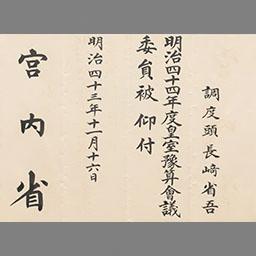 調度頭長崎省吾
明治四十四年度皇室豫算會議
委員被仰付
明治四十三年十一月十六日
宮内省